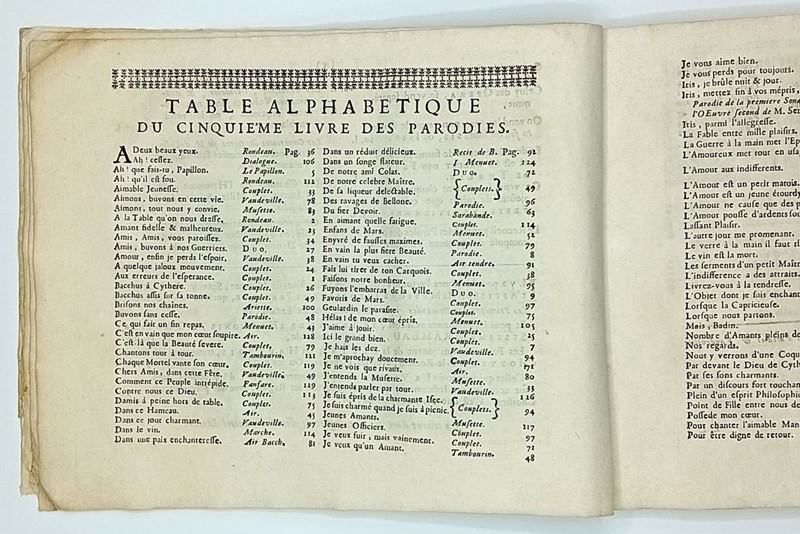 TABLE ALPHABETIQUE
DU CINQUIE'ME LIVRE DES PARODIES.
A Deux beaux yeux. Rondeau. Pag. 36
Ah ! cessez. Dialogue. 106
Ah ! que fais-tu, Papillon. Le Papillon. 5
Ah ! qu'il est fou. Rondeau. 112
Aimable Jeunesse. Couplet. 33
Aimons, buvons en cette vie. Vaudeville. 78
Aimons, tout nous y convie. Musette. 83
A la Table qu'on nous dresse, Rondeau. 2
Amant fidelle & malheureux. Vaudeville. 23
Amis, Amis, vous paroissez. Couplet. 34
Amis, buvons à nos Guerriers. DUO. 27
Amour, enfin je perds l'espoir. Vaudeville. 38
A quelque jaloux mouvement. Couplet. 24
Aux erreurs de l'esperance. Couplet. 1
Bacchus à Cythere. Couplet. 26
Bacchus assis sur sa tonne. Couplet. 49
Brisons nos chaînes. Ariette. 100
Buvons sans cesse. Parodie. 48
Ce qui fait un fin repas. Menuet. 43
C'est en vain que mon cœur soupire. Air. 128
C'est-là que la Beauté severe. Couplet. 79
Chantons tour à tour. Tambourin. 121
Chaque Mortel vante son cœur. Couplet. 119
Chers Amis, dans cette Fête. Vaudeville. 49
Comment ce Peuple intrépide. Fanfare. 129
Contre nous ce Dieu. Couplet. 113
Damis à peine hors de table. Couplet. 75
Dans ce Hameau. Air. 45
Dans ce jour charmant. Vaudeville. 97
Dans le vin. Marche. 114
Dans une paix enchanteresse. Air Bacch. 81
Dans un réduit délicieux. Recit de B. Pag. 92
Dans un songe flateur. I. Menuet. 124
De notre ami Colas. DUO. 72
De notre celebre Maître.
De sa liqueur delectable. {Couplets.} 49
Des ravages de Bellone. Parodie. 96
Du fier Devoir. Sarabande. 63
En aimant quelle fatigue. Couplet. 114
Enfans de Mars. Menuet. 52
Enyvré de fausses maximes. Couplet. 79
En vain la plus fiere Beauté. Parodie. 8
En vain tu veux cacher. Air tendre. 91
Fais lui tirer de ton Carquois. Couplet. 38
Faisons notre bonheur. Menuet. 95
Fuyons l'embarras de la Ville. DUO. 9
Favoris de Mars. Couplet. 97
Geulardin le parasite. Couplet. 75
Hélas ! de mon cœur épris. Menuet. 105
J'aime à jouir. Couplet. 25
Ici le grand bien. Couplet. 7
Je hais les dez. Vaudeville. 94
Je m'aprochay doucement. Couplet. 71
Je ne vois que rivaux. Air. 80
J'entends la Musette. Musette. 33
J'entends parler par tout. Vaudeville. 126
Je suis épris de la charmante Isée.
Je suis charmé quand je suis à picnic. {Couplets.} 94
Jeunes Amants. Musette. 117
Jeunes Officiers. Couplet. 97
Je veux fuir, mais vainement. Couplet. 71
Je veux qu'un Amant. Tambourin. 48
Je vous aime bien.
Je vous perds pour toujours.
Iris, je brûle nuit & jour.
Iris, mettez fin à vos mépris,
Parodie de la premiere Sona
l'Œuvre second de M. Se
Iris, parmi l'allegresse.
La Fable entre mille plaisirs.
La Guerre à la main met l'Ep
L'Amoureux met tout en usa
L'Amour aux indifferents.
L'Amour est un petit matois.
L'Amour est un jeune étourd
L'Amour ne cause que des p
L'Amour pousse d'ardents sou
Lassant Plaisir.
L'autre jour me promenant.
Le verre à la main il faut
Le vin est la mort.
Les serments d'un petit Maîtr
L'indifference a des attraits.
Livrez-vous à la tendresse.
L'Objet dont je suis enchant
Lorsque la Capricieuse.
Lorsque nous partons.
Mais, Badin.
Nombre d'Amants pleins de
Nos regards.
Nous y verrons d'une Coqu
Par devant le Dieu de Cyth
Par ses sons charmants.
Par un discours fort touchan
Plein d'un esprit Philosophi
Point de Fille entre nous de
Possede mon cœur.
Pour chanter l'aimable Man
Pour être digne de retour.